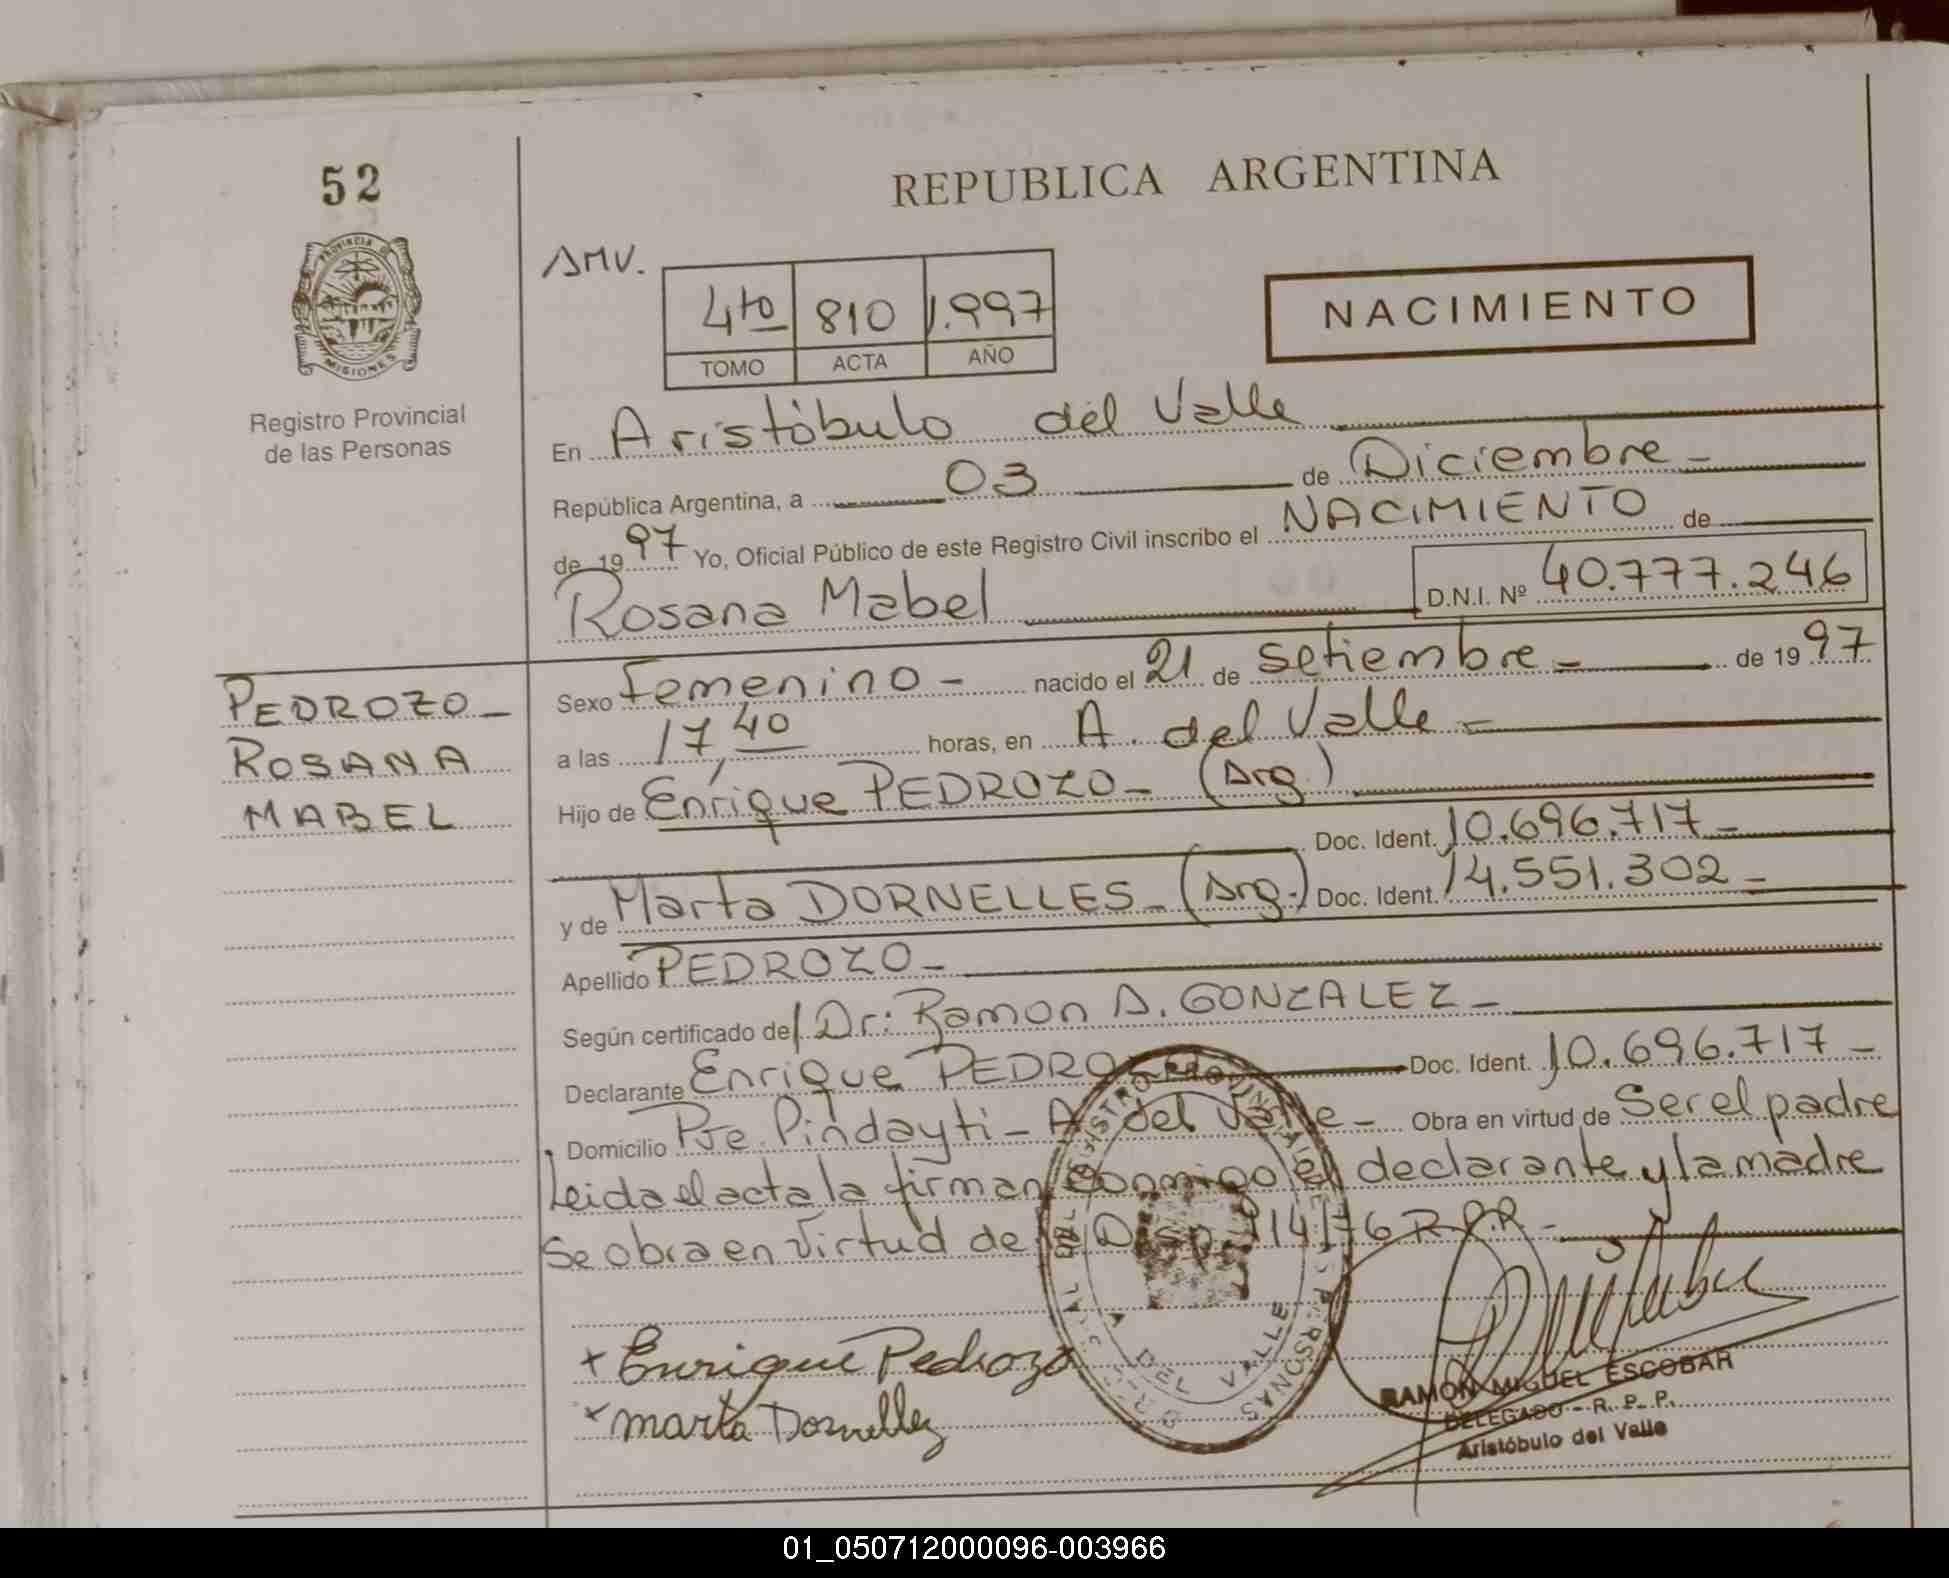 52
REPUBLICA ARGENTINA
PROVINCIA D
MISIONES
Registro Provincial
de las Personas
AMV.
4to 810 1.997
TOMO ACTA AÑO
NACIMIENTO
En Aristóbulo del Valle
República Argentina, a 03 de Diciembre
de 1997 Yo, Oficial Público de este Registro Civil inscribo el NACIMIENTO de
Rosana Mabel D.N.I. Nº 40.777.246
PEDROZO
ROSANA
MABEL
Sexo Femenino nacido el 21 de setiembre de 1997
a las 17,40 horas, en A. del Valle
Hijo de Enrique PEDROZO (Arg.)
Doc. Ident. 10.696.717
y de Marta DORNELLES (Arg.) Doc. Ident. 14.551.302
Apellido PEDROZO
Según certificado del Dr: Ramon A. GONZALEZ
Declarante Enrique PEDROZO Doc. Ident. 10.696.717
Domicilio Pje. Pindayti - A del Valle Obra en virtud de Ser el padre
Leida el acta la firman conmigo el declarante y la madre
se obra en virtud de la Disp. 114/76 R.P.P.
Enrique Pedrozo
Marta Dornelles
DEL VALLE
RAMON MIGUEL ESCOBAR
DELEGADO - R. P. P.
Aristóbulo del Valle
01_050712000096-003966